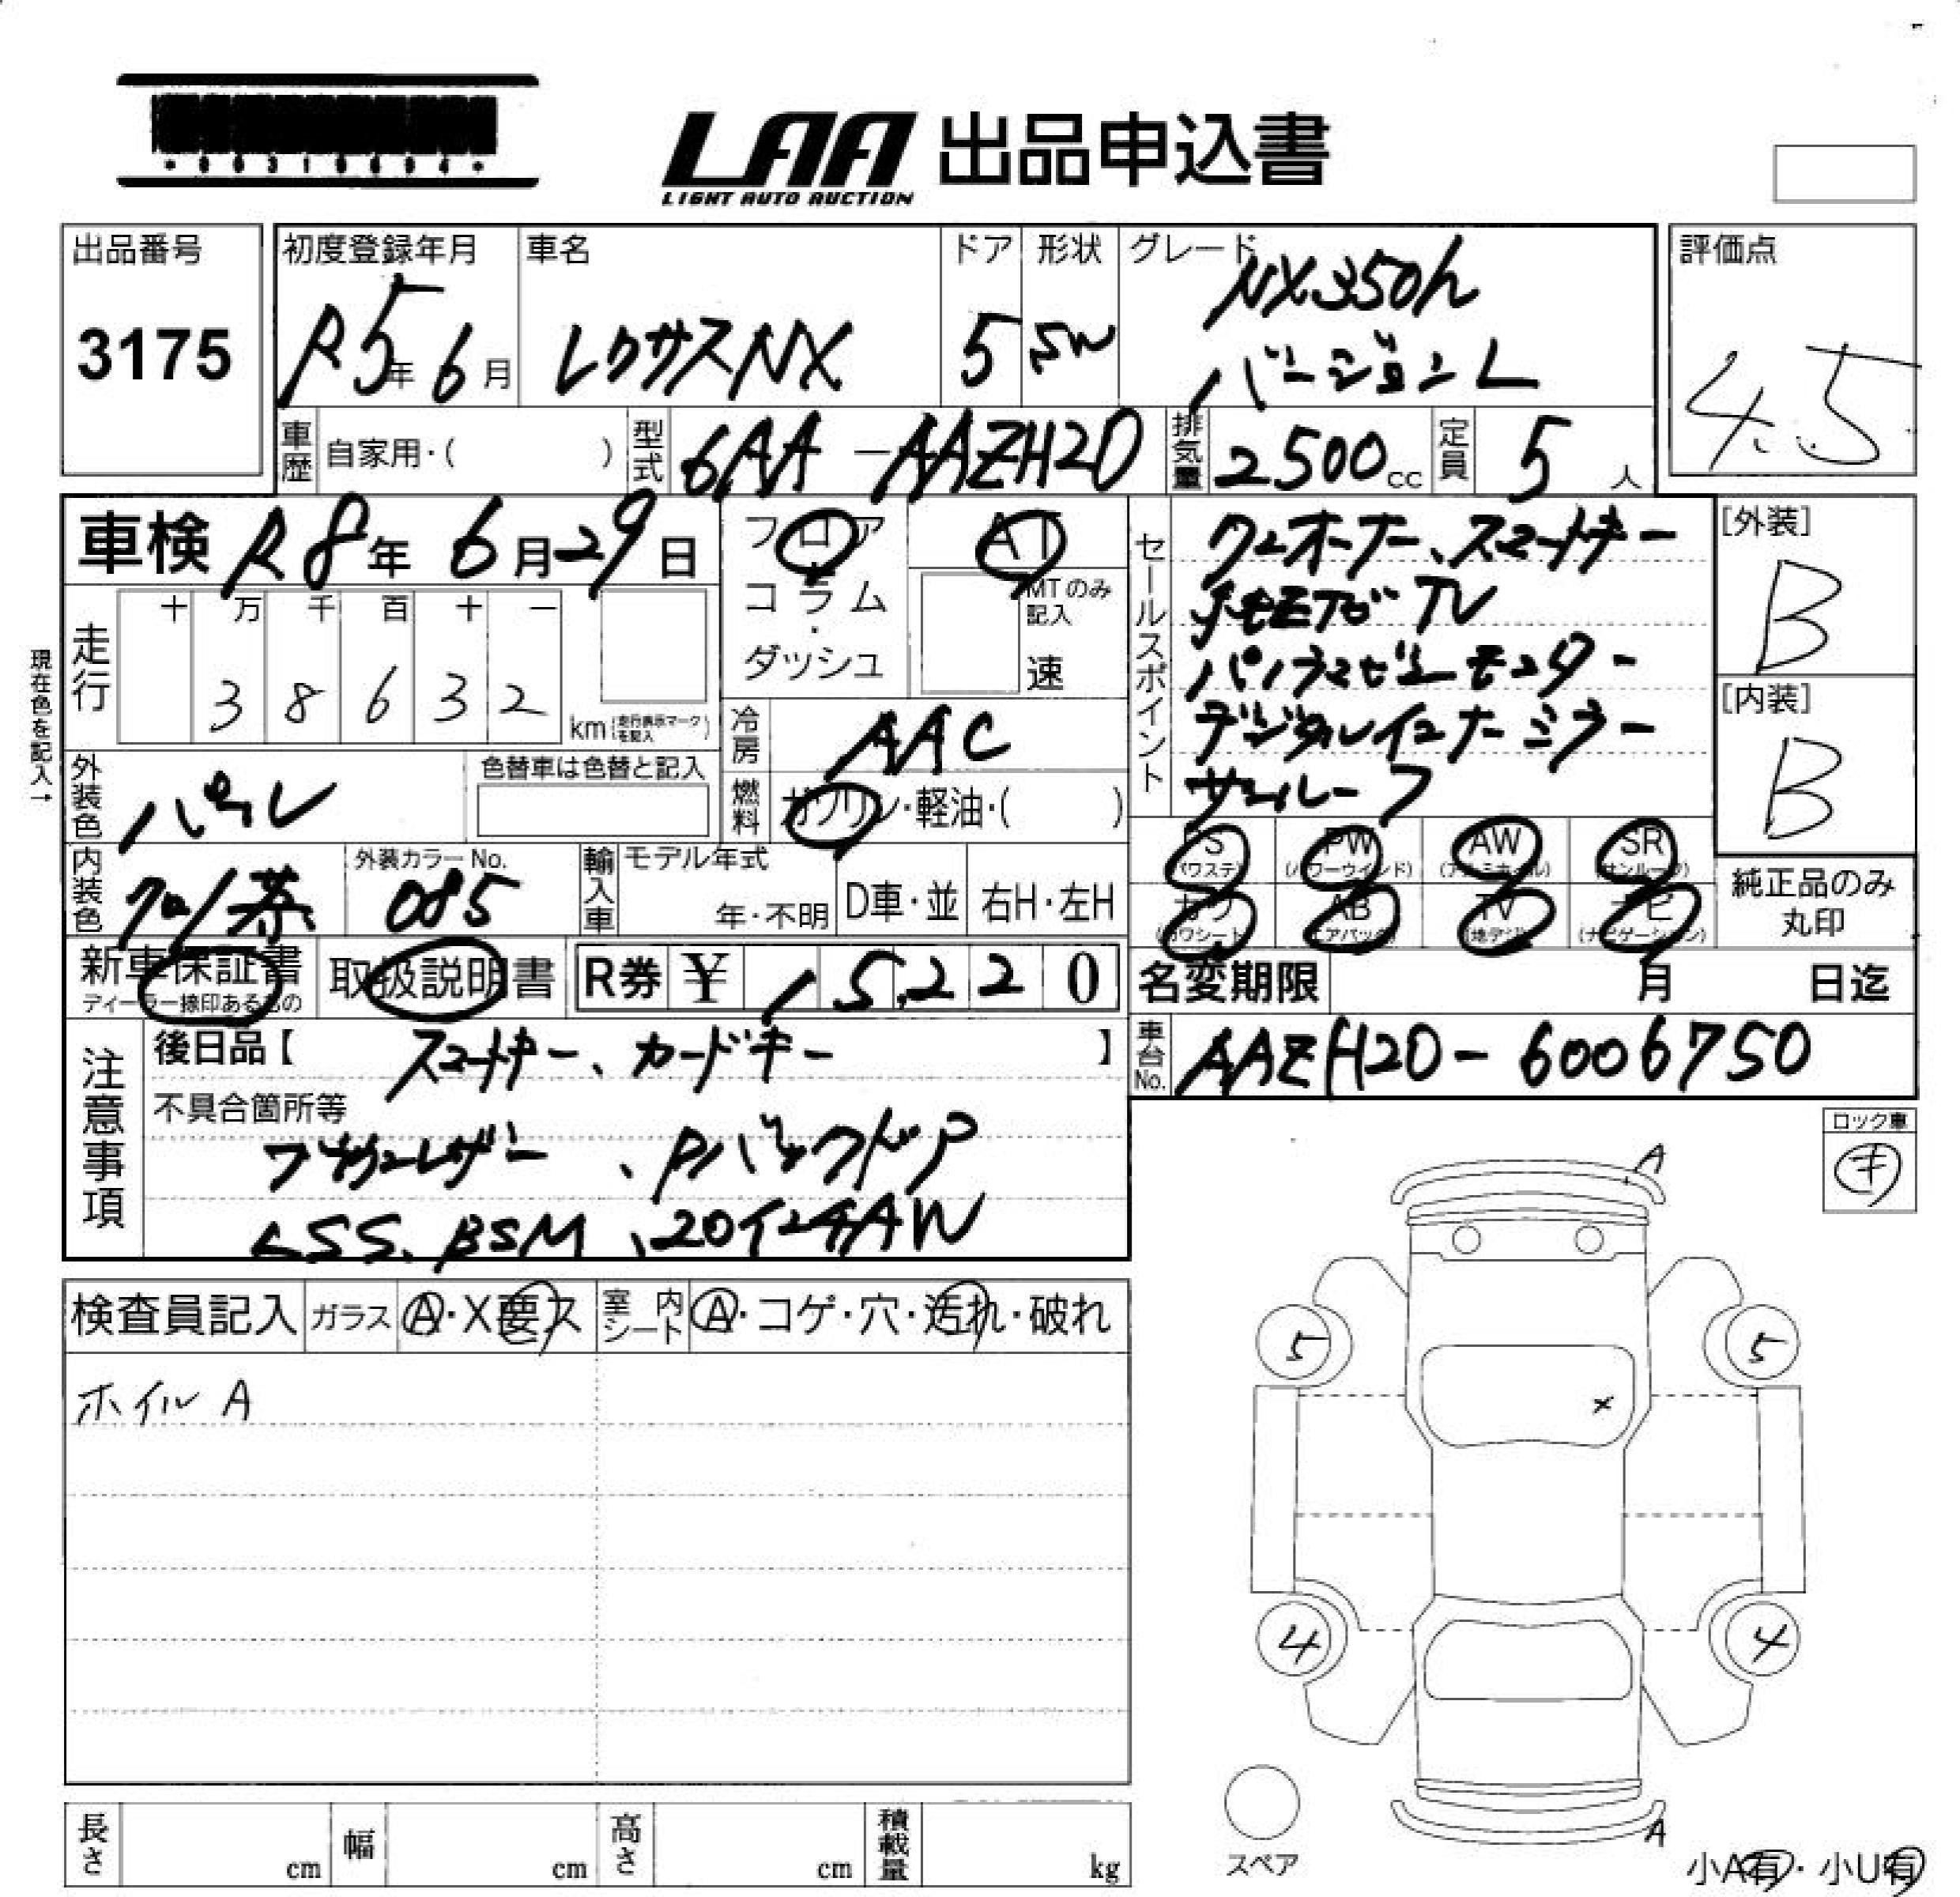 LAA 出品申込書
LIGHT AUTO AUCTION
出品番号
3175
初度登録年月
R5年6月
車名
レクサスNX
ドア
5
形状
SW
グレード
NX350h
バージョンL
評価点
4.5
車歴 自家用・( )
型式 6AA-AAZH20
排気量 2500cc
定員 5人
車検 R8年6月29日
現在色を記入→
走行
十 万 千 百 十 一
3 8 6 3 2
km (走行表示マークを記入)
フロア
コラム
・
ダッシュ
AT
MTのみ記入
速
冷房 AAC
燃料 ガソリン・軽油・( )
外装色 パール
色替車は色替と記入
内装色 クロ/茶
外装カラーNo.
085
輸入車 モデル年式
年・不明
D車・並
右H・左H
新車保証書
ディーラー捺印あるもの
取扱説明書
R券 ¥ 15,220
セールスポイント
ワンオーナー、スマートキー
TV
パノラマビューモニター
デジタルインナーミラー
サンルーフ
[外装]
B
[内装]
B
PS (パワステ)
PW (パワーウインド)
AW (アルミホイル)
SR (サンルーフ)
カワ (カワシート)
AB (エアバック)
TV (地デジ)
ナビ (ナビゲーション)
純正品のみ丸印
名変期限 月 日迄
車台No. AAZH20-6006750
注意事項
後日品【 スマートキー、カードキー 】
不具合箇所等
、Pバックドア
LSS、BSM、20インチAW
ロック車
キ
検査員記入
ガラス A・X要ス
室内シート A・コゲ・穴・汚れ・破れ
ホイル A
A
5
5
×
4
4
A
スペア
小A有・小U有
長さ cm
幅 cm
高さ cm
積載量 kg